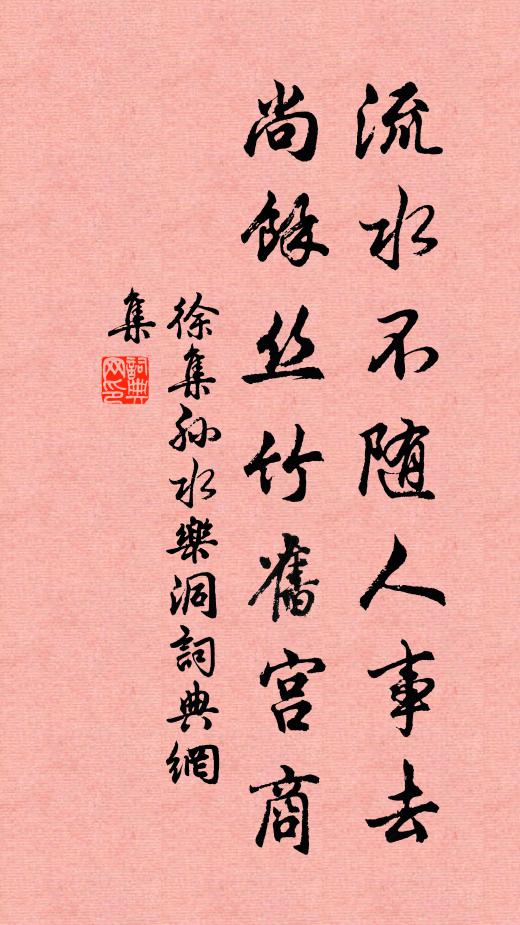 流水不随人事去
尚餘丝竹舊宫商
徐集孙水樂洞詞典網
集
詞典网印